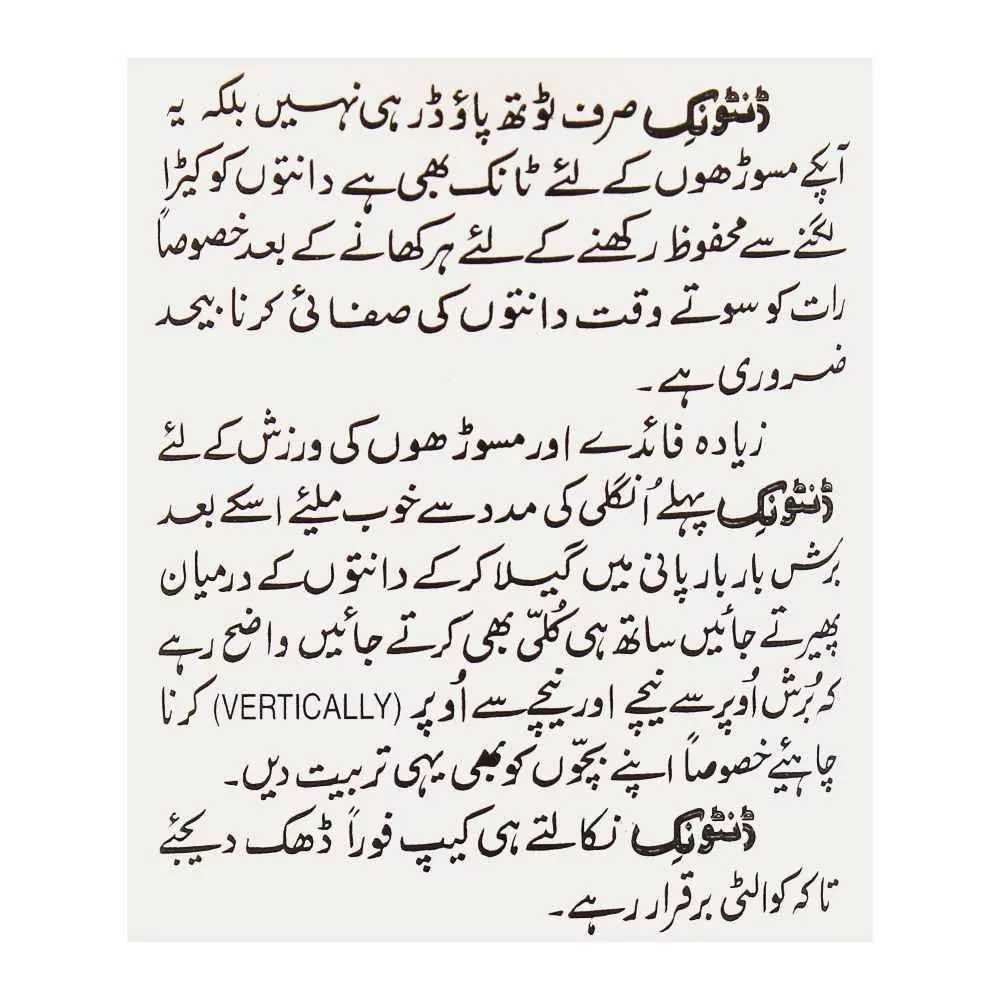 ڈنٹونک صرف ٹوتھ پاؤڈر ہی نہیں بلکہ یہ
آپکے مسوڑھوں کے لئے ٹانک بھی ہے دانتوں کو کیڑا
لگنے سے محفوظ رکھنے کے لئے ہر کھانے کے بعد خصوصاً
رات کو سوتے وقت دانتوں کی صفائی کرنا بیحد
ضروری ہے۔
زیادہ فائدے اور مسوڑھوں کی ورزش کے لئے
ڈنٹونک پہلے اُنگلی کی مدد سے خوب ملیئے اسکے بعد
برش بار بار پانی میں گیلا کر کے دانتوں کے درمیان
پھیرتے جائیں ساتھ ہی کُلّی بھی کرتے جائیں واضح رہے
کہ بُرش اُوپر سے نیچے اور نیچے سے اُوپر (VERTICALLY) کرنا
چاہیئے خصوصاً اپنے بچّوں کو بھی یہی تربیت دیں۔
ڈنٹونک نکالتے ہی کیپ فوراً ڈھک دیجئے
تاکہ کوالٹی برقرار رہے۔